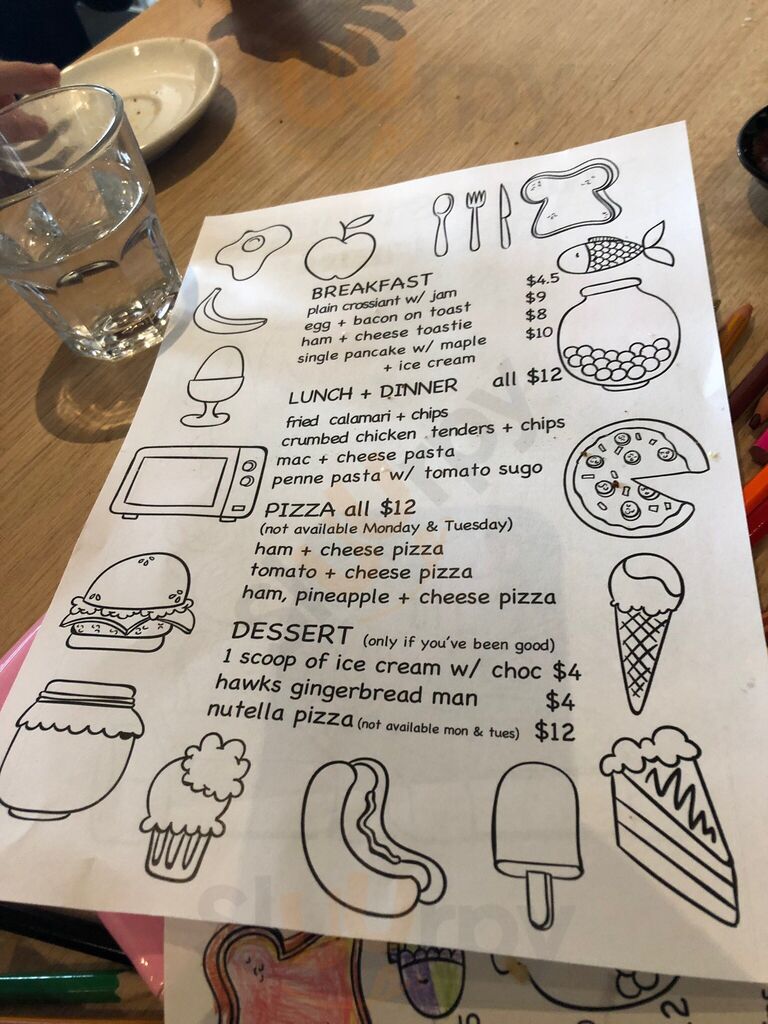 BREAKFAST
plain crossiant w/ jam $4.5
egg + bacon on toast $9
ham + cheese toastie $8
single pancake w/ maple $10
+ ice cream
LUNCH + DINNER all $12
fried calamari + chips
crumbed chicken tenders + chips
mac + cheese pasta
penne pasta w/ tomato sugo
PIZZA all $12
(not available Monday & Tuesday)
ham + cheese pizza
tomato + cheese pizza
ham, pineapple + cheese pizza
DESSERT (only if you've been good)
1 scoop of ice cream w/ choc $4
hawks gingerbread man $4
nutella pizza (not available mon & tues) $12
Sluurpy